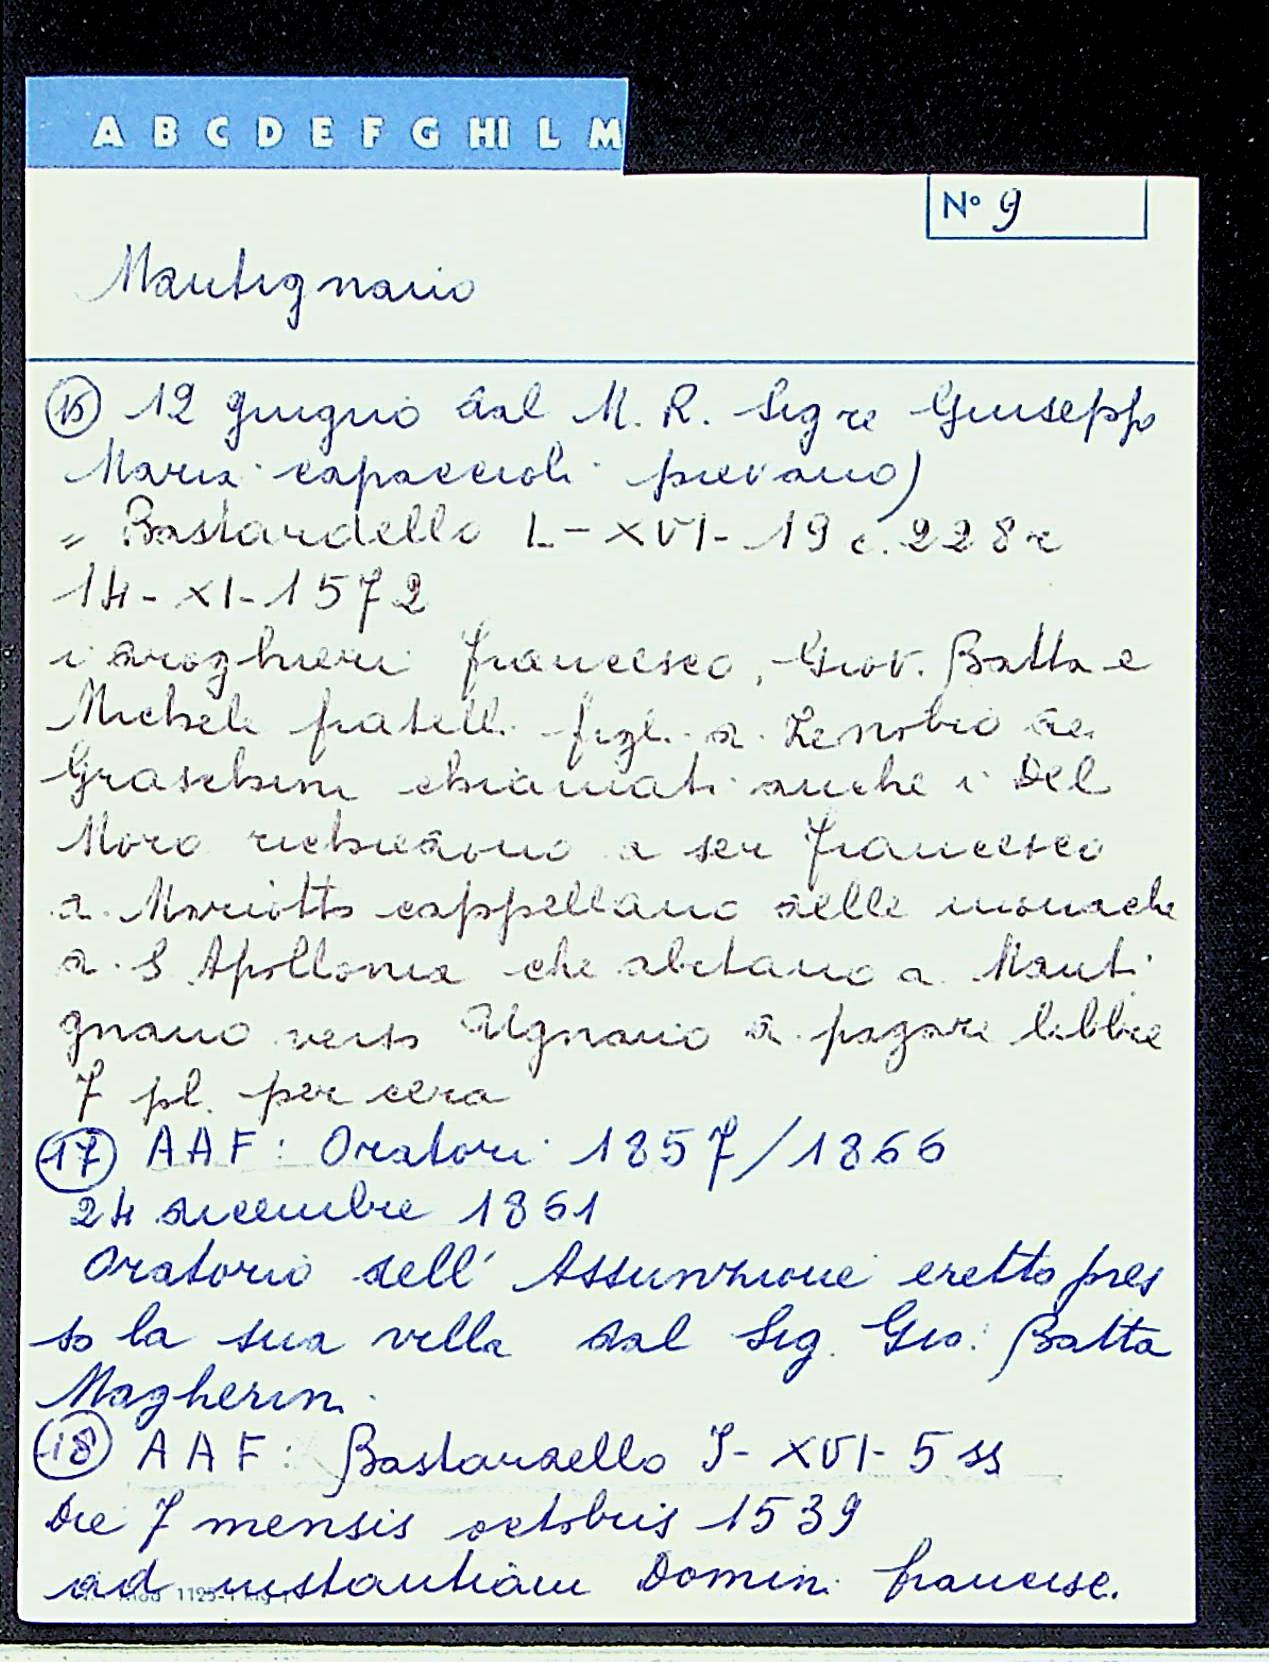 A B C D E F G HI L M
N° 9
Mantignano
15 12 giugno dal M. R. Sig re Giuseppe
Maria Capaccioli pievano)
= Bastardello L-XVI-19 c. 228r
14-XI-1572
i droghieri Francesco, Giov. Batta e
Michele fratelli figli di Zenobio de
Graschini chiamati anche i Del
Moro richiedono a ser Francesco
di Mariotto cappellano delle monache
di S Apollonia che abitano a Manti
gnano verso Ugnano di pagare libbre
7 pl. per cera
17 AAF: Oratori 1857/1866
24 dicembre 1861
Oratorio dell' Assunzione eretto pres
so la sua villa dal Sig. Gio: Batta
Magherini
18 AAF: Bastardello J-XVI-5 ss
Die 7 mensis octobris 1539
ad instantiam Domini francisc.